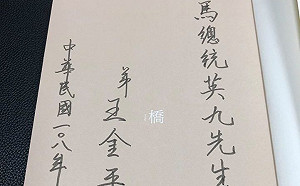 馬總統英九先生
弟王金平
中華民國一〇八年
橋